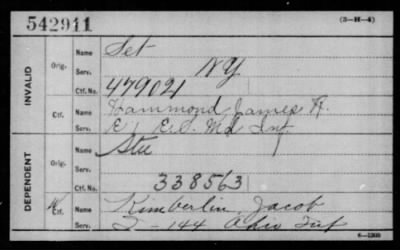 542911
(3-H-4)
INVALID
Orig.
Name
Serv.
N Y
Ctf. No.
479021
Ctf.
Name
Hammond James H.
Serv.
E. E.S. Md Inf
DEPENDENT
Orig.
Name
Serv.
Ctf. No.
338563
W
Ctf.
Name
Kimberlin Jacob
Serv.
144 Ohio Inf
6—2269